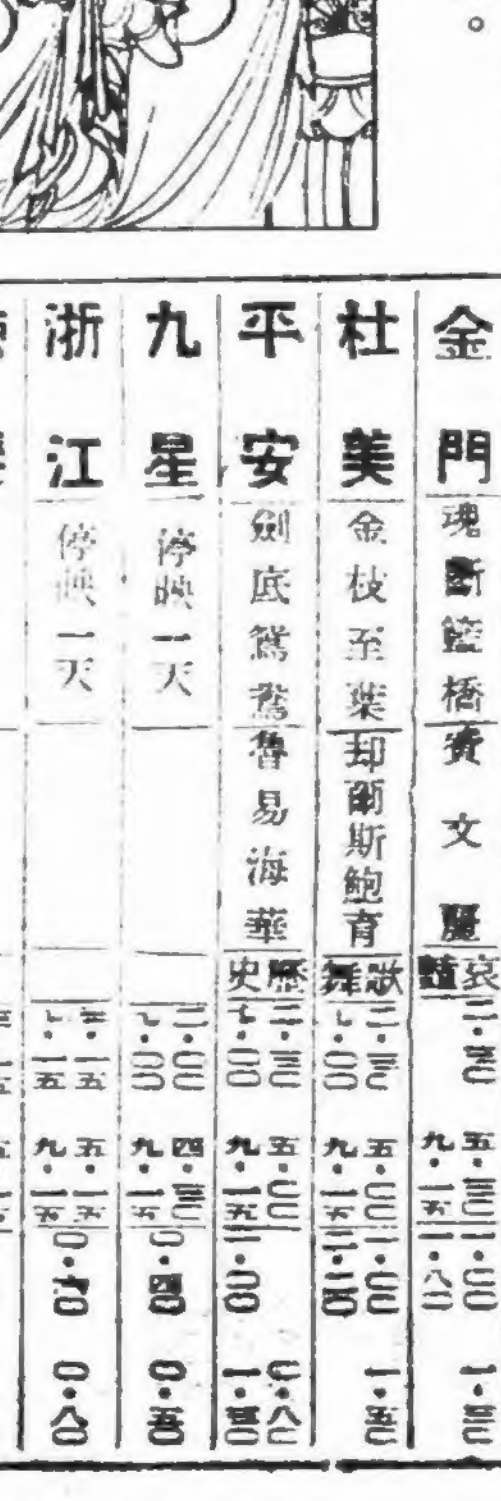 金門
魂斷藍橋
費文麗
哀豔
二・三〇
五・三〇
九・一五
一・〇〇
一・八〇
一・三〇
杜美
金枝玉葉
却爾斯鮑育
歌舞
二・三〇
七・〇〇
五・〇〇
九・一五
一・〇〇
一・五〇
平安
劍底鴛鴦
魯易海華
歷史
二・三〇
七・〇〇
五・〇〇
九・一五
〇・八〇
九星
停映一天
二・〇〇
七・〇〇
四・三〇
九・一五
〇・四〇
〇・五〇
浙江
停映一天
三・一五
七・一五
五・一五
九・一五
〇・六〇
〇・八〇